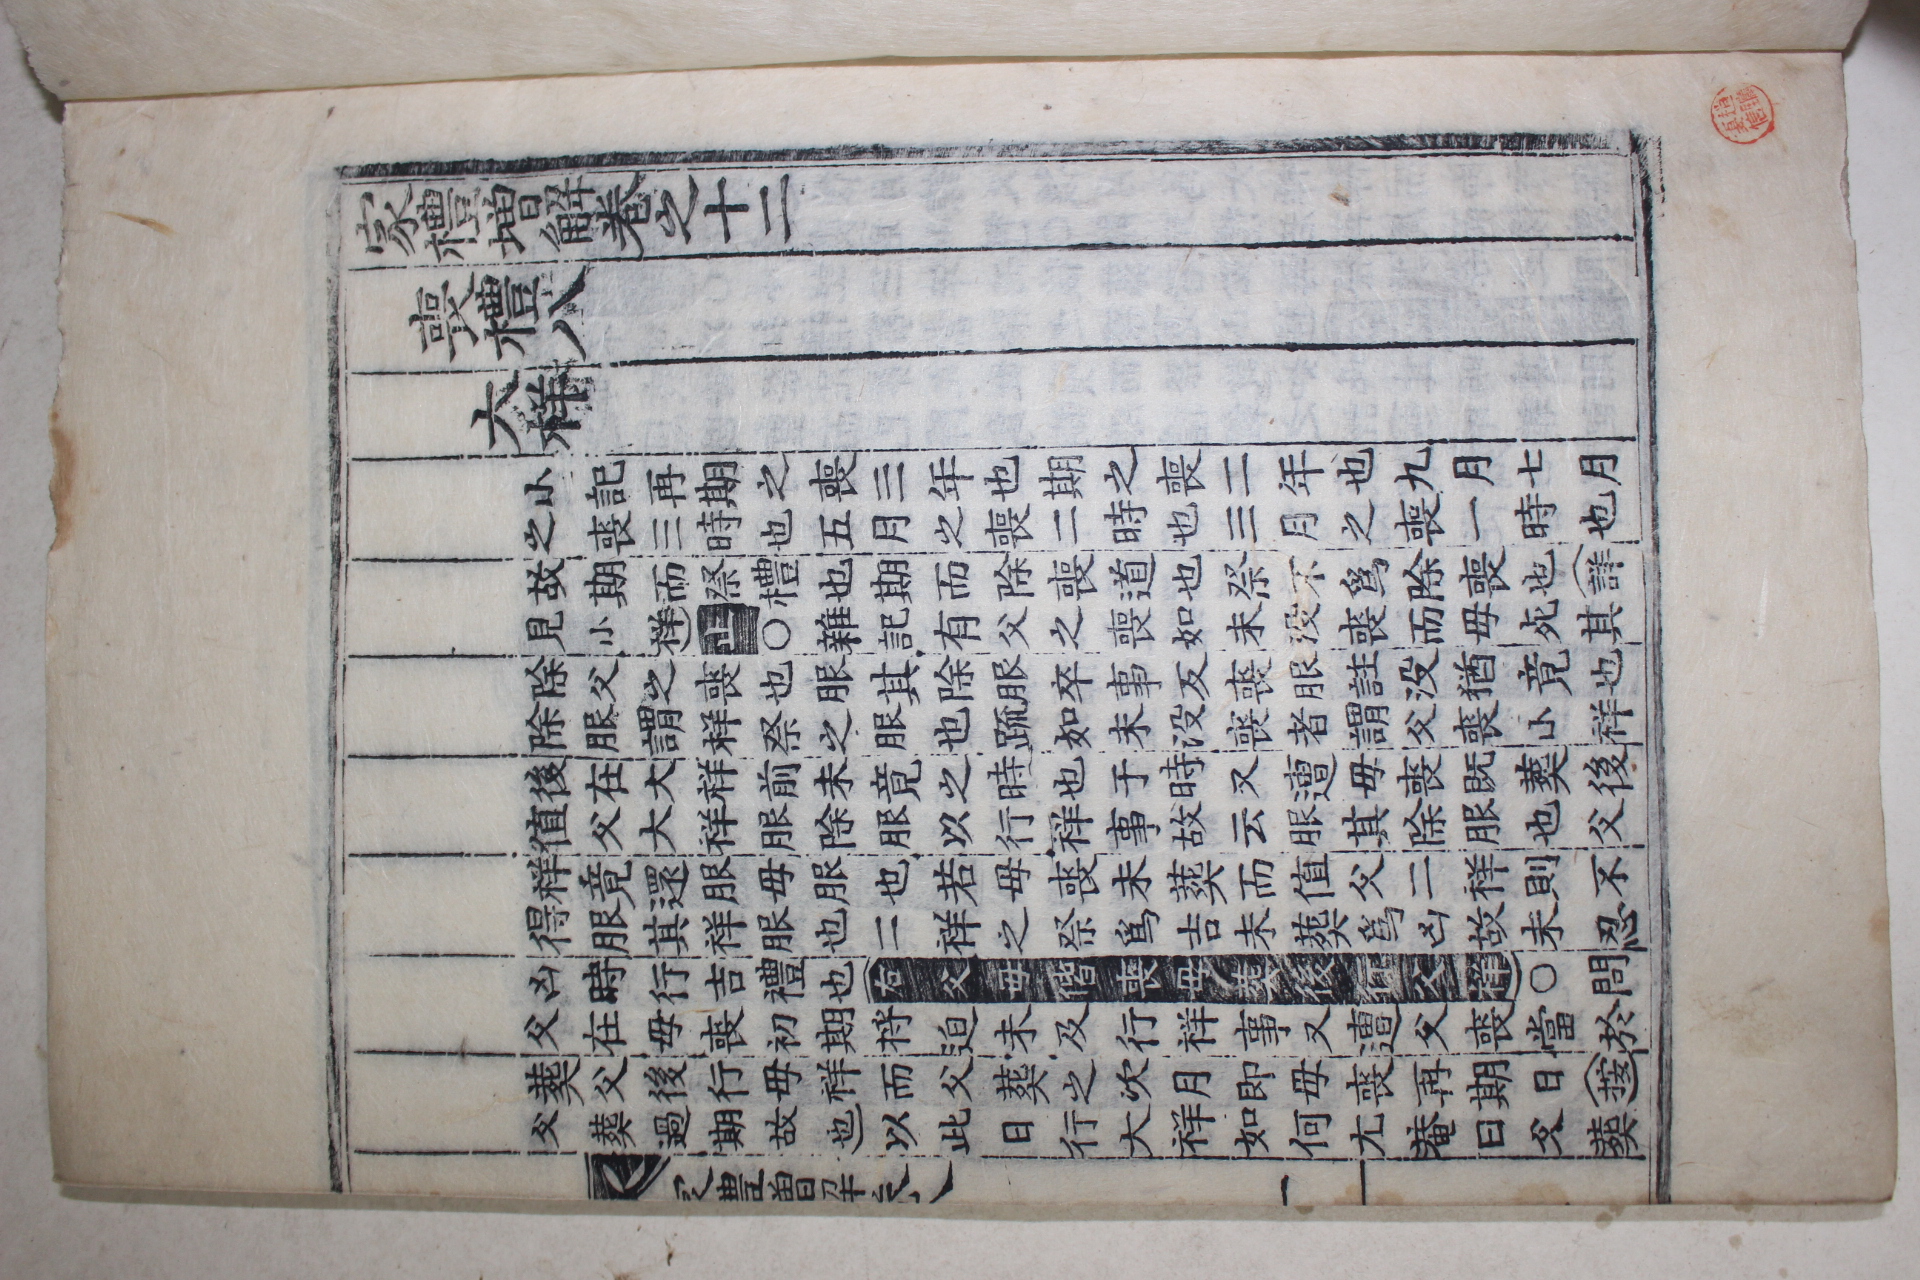 家禮增解卷之十二
喪禮八
大祥
小記再期之喪三年也期之喪二年也九月七月
之喪三時也五月之喪二時也三月之喪一時也
故期而祭禮也期而除喪道也祭不爲除喪也詳
見小祥〇雜記有父之喪如未没喪而母死其
除父之喪也服其除服卒事反喪服註没猶竟也
除服謂祥祭之服也疏如未没喪者謂父喪小祥
後在大祥前未竟之時也于時又遭母喪旣葬後
值父大祥服除服以行祥事故云服其除服也父
祥竟還服母服也若母喪未葬而值父二祥則不
得服其祥服也二祥之祭爲吉未葬爲凶故未忍
凶時行吉禮也右父母偕喪母葬後行父祥〇問
父在母喪初期將迫未及行祥事又遭父喪當於
葬父後行母祥而父葬之次月卽母喪再期日按
父葬過期故也以此日行大祥如何尤菴曰父葬
一